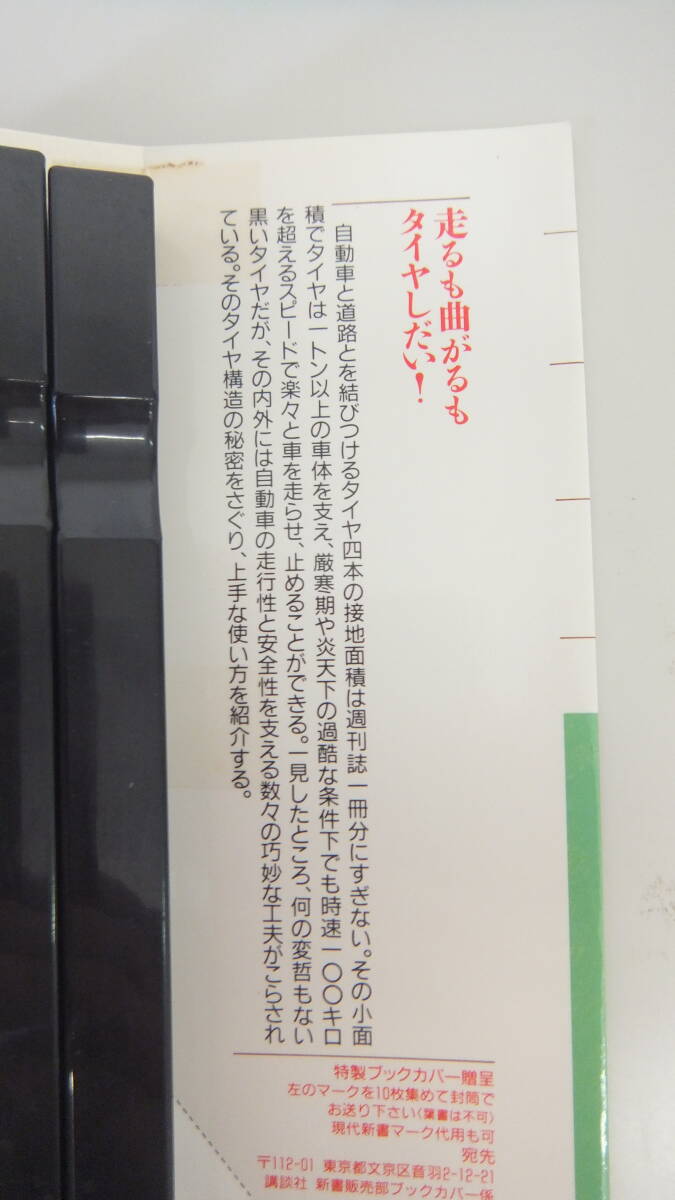 走るも曲がるも
タイヤしだい！
自動車と道路とを結びつけるタイヤ四本の接地面積は週刊誌一冊分にすぎない。その小面
積でタイヤは一トン以上の車体を支え、厳寒期や炎天下の過酷な条件下でも時速一〇〇キロ
を超えるスピードで楽々と車を走らせ、止めることができる。一見したところ、何の変哲もない
黒いタイヤだが、その内外には自動車の走行性と安全性を支える数々の巧妙な工夫がこらされ
ている。そのタイヤ構造の秘密をさぐり、上手な使い方を紹介する。
特製ブックカバー贈呈
左のマークを10枚集めて封筒で
お送り下さい（葉書は不可）
現代新書マーク代用も可
宛先
〒112-01 東京都文京区音羽2-12-21
講談社 新書販売部ブックカバー係